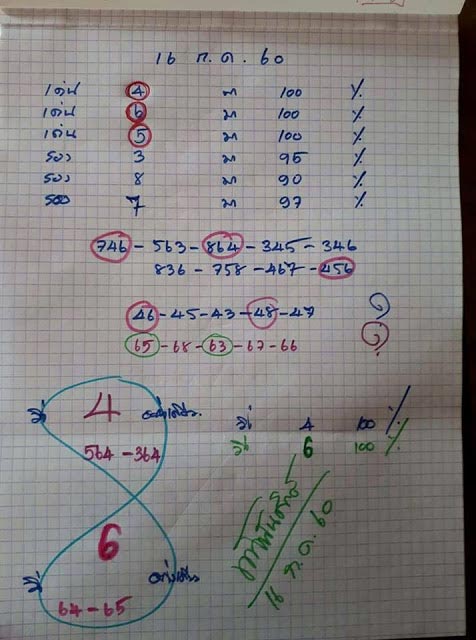 16 ก.ค. 60
เด่น 4 มา 100 %
เด่น 6 มา 100 %
เด่น 5 มา 100 %
รอง 3 มา 95 %
รอง 8 มา 90 %
รอง 7 มา 97 %
746 - 563 - 864 - 345 - 346
836 - 758 - 467 - 456
46 - 45 - 43 - 48 - 47
65 - 68 - 63 - 67 - 66
4
564 - 364
4 100 %
6 100 %
6
64 - 65
16 ก.ค. 60